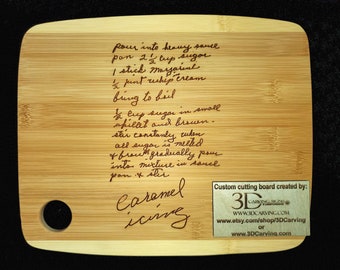 pour into heavy sauce
pan 2 1/2 cup sugar
1 stick Margarine
1/2 pint whip cream
bring to boil
1/2 cup sugar in small
skillet and brown -
stir constantly when
all sugar is melted
& brown gradually pour
into mixture in sauce
pan & stir
caramel
icing
Custom cutting board created by:
3D
WWW.3DCARVING.COM
www.etsy.com/shop/3DCarving
or
www.3DCarving.com